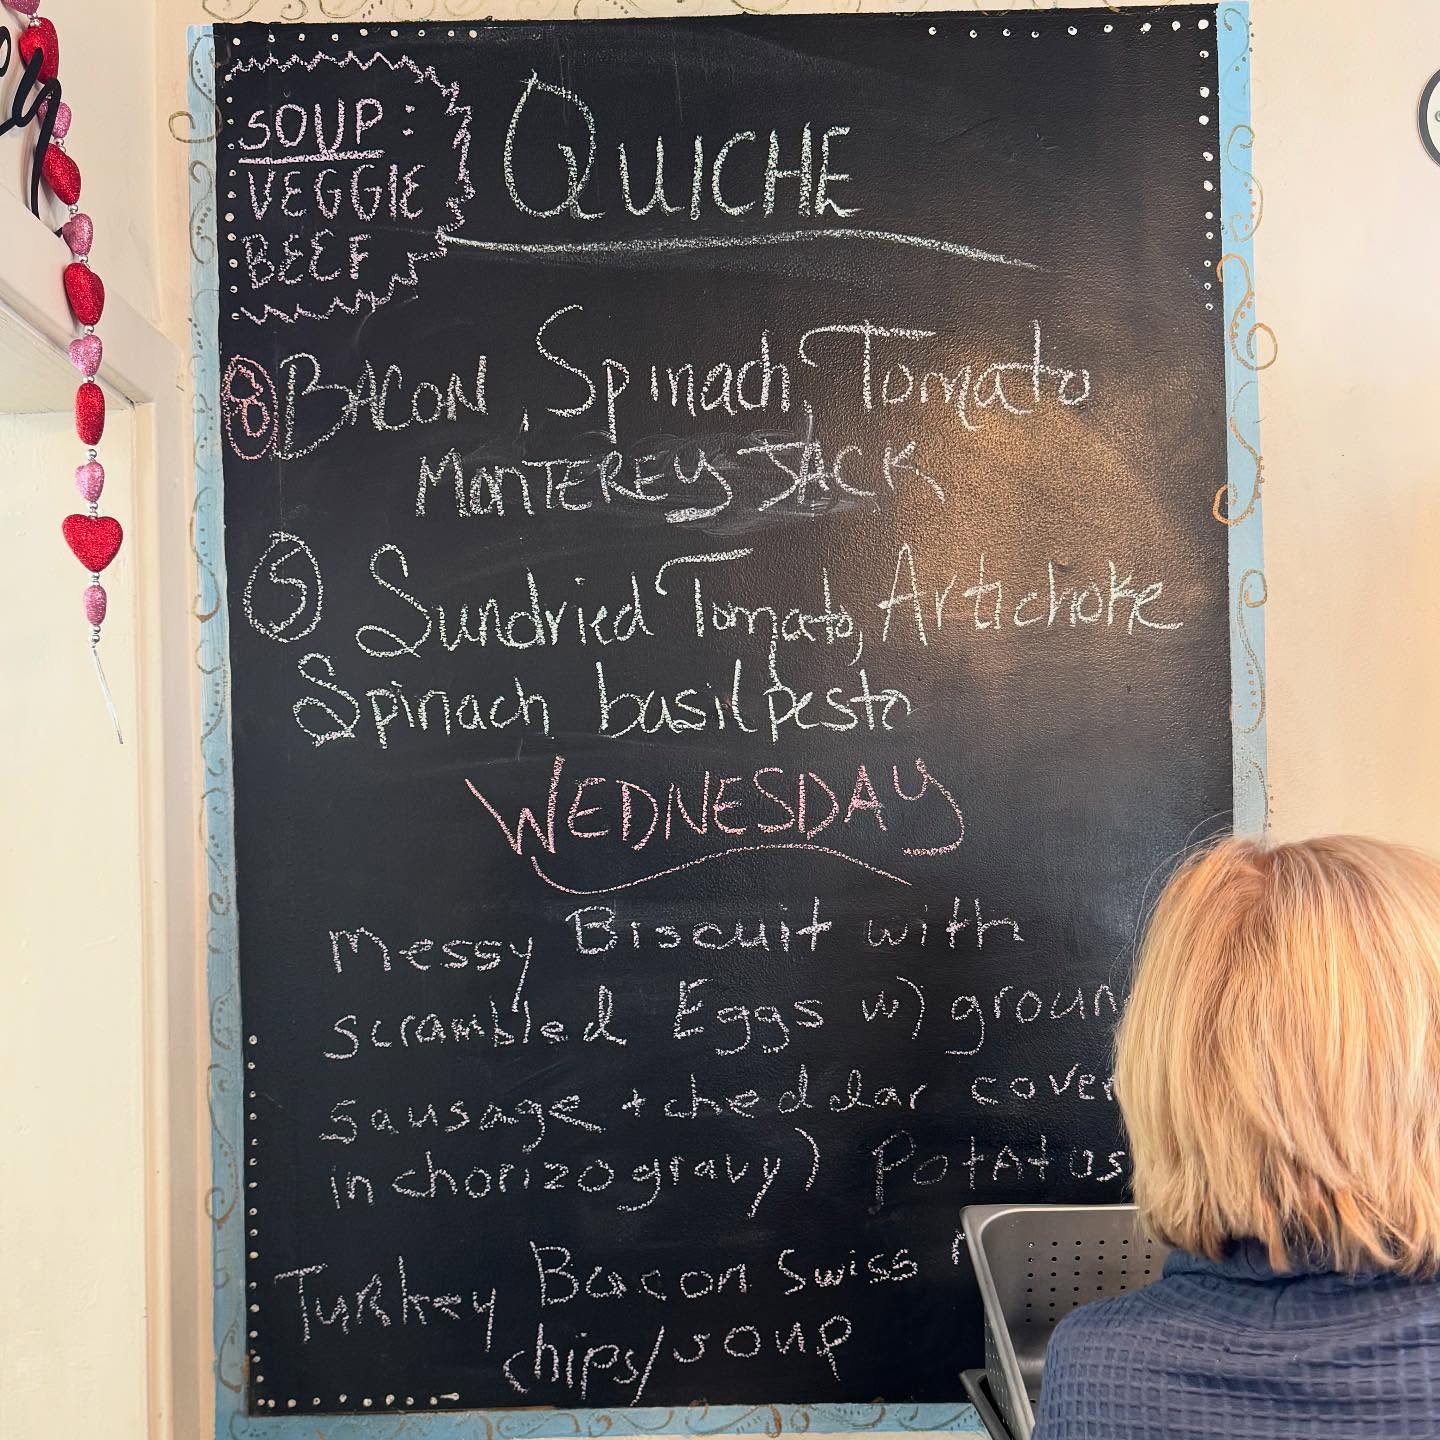 SOUP:
VEGGIE
BEEF
QUICHE
BACON, Spinach, Tomato
MONTEREY JACK
5 Sundried Tomato, Artichoke
Spinach basil pesto
WEDNESDAY
Messy Biscuit with
scrambled Eggs w)
sausage + cheddar
in chorizo gravy)
Turkey Bacon Swiss
chips/soup